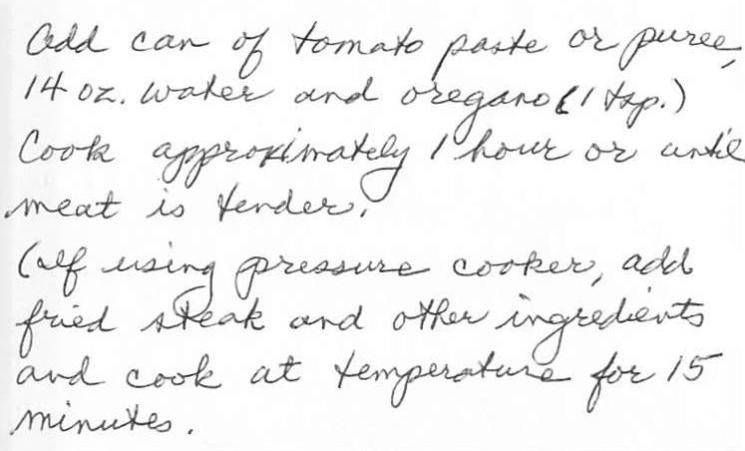 Add can of tomato paste or puree,
14 oz. water and oregano (1 tsp.)
Cook approximately 1 hour or until
meat is tender.
(If using pressure cooker, add
fried steak and other ingredients
and cook at temperature for 15
minutes.